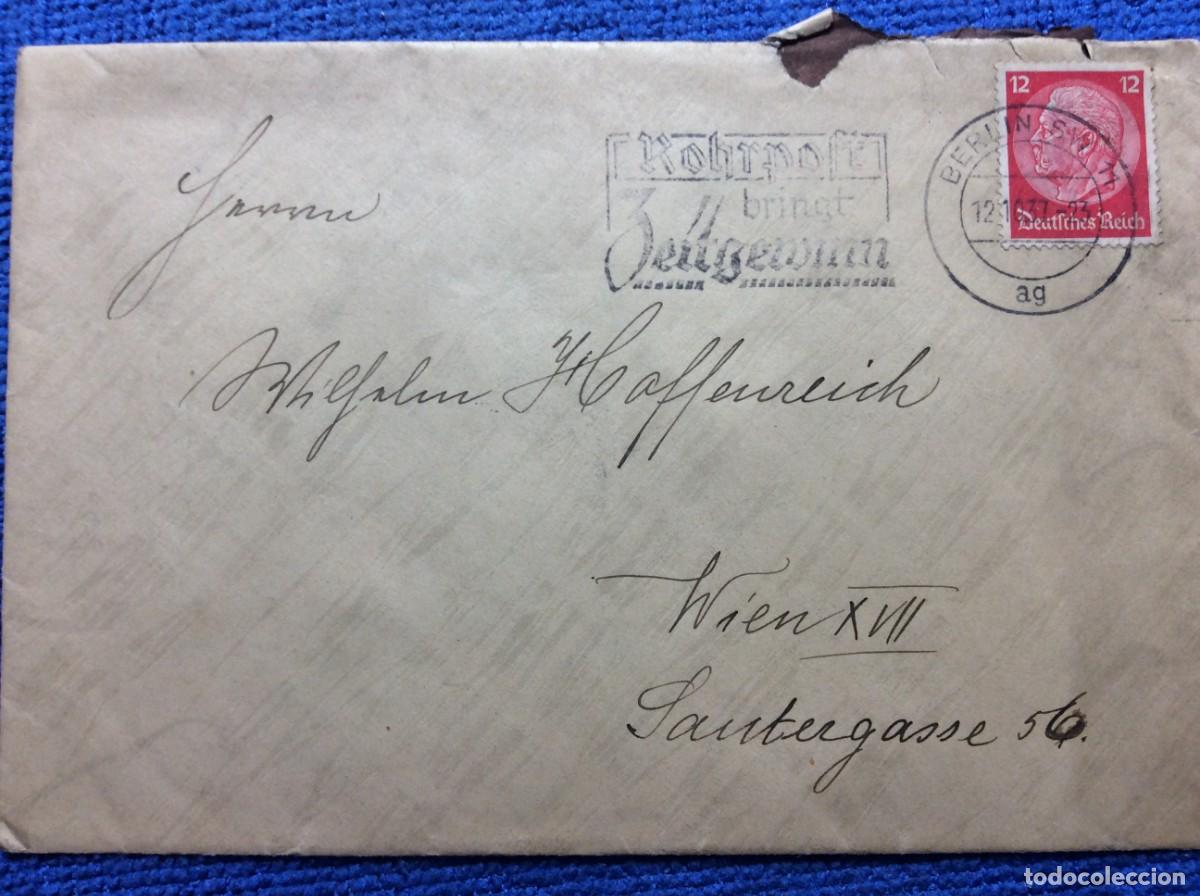 12 12
Deutsches Reich
Rohrpost
bringt
Zeitgewinn
BERLIN SW 11
12.10.37.-23
ag
Herrn
Wilhelm Hoffenreich
Wien XVII
Sautergasse 56.
todocoleccion